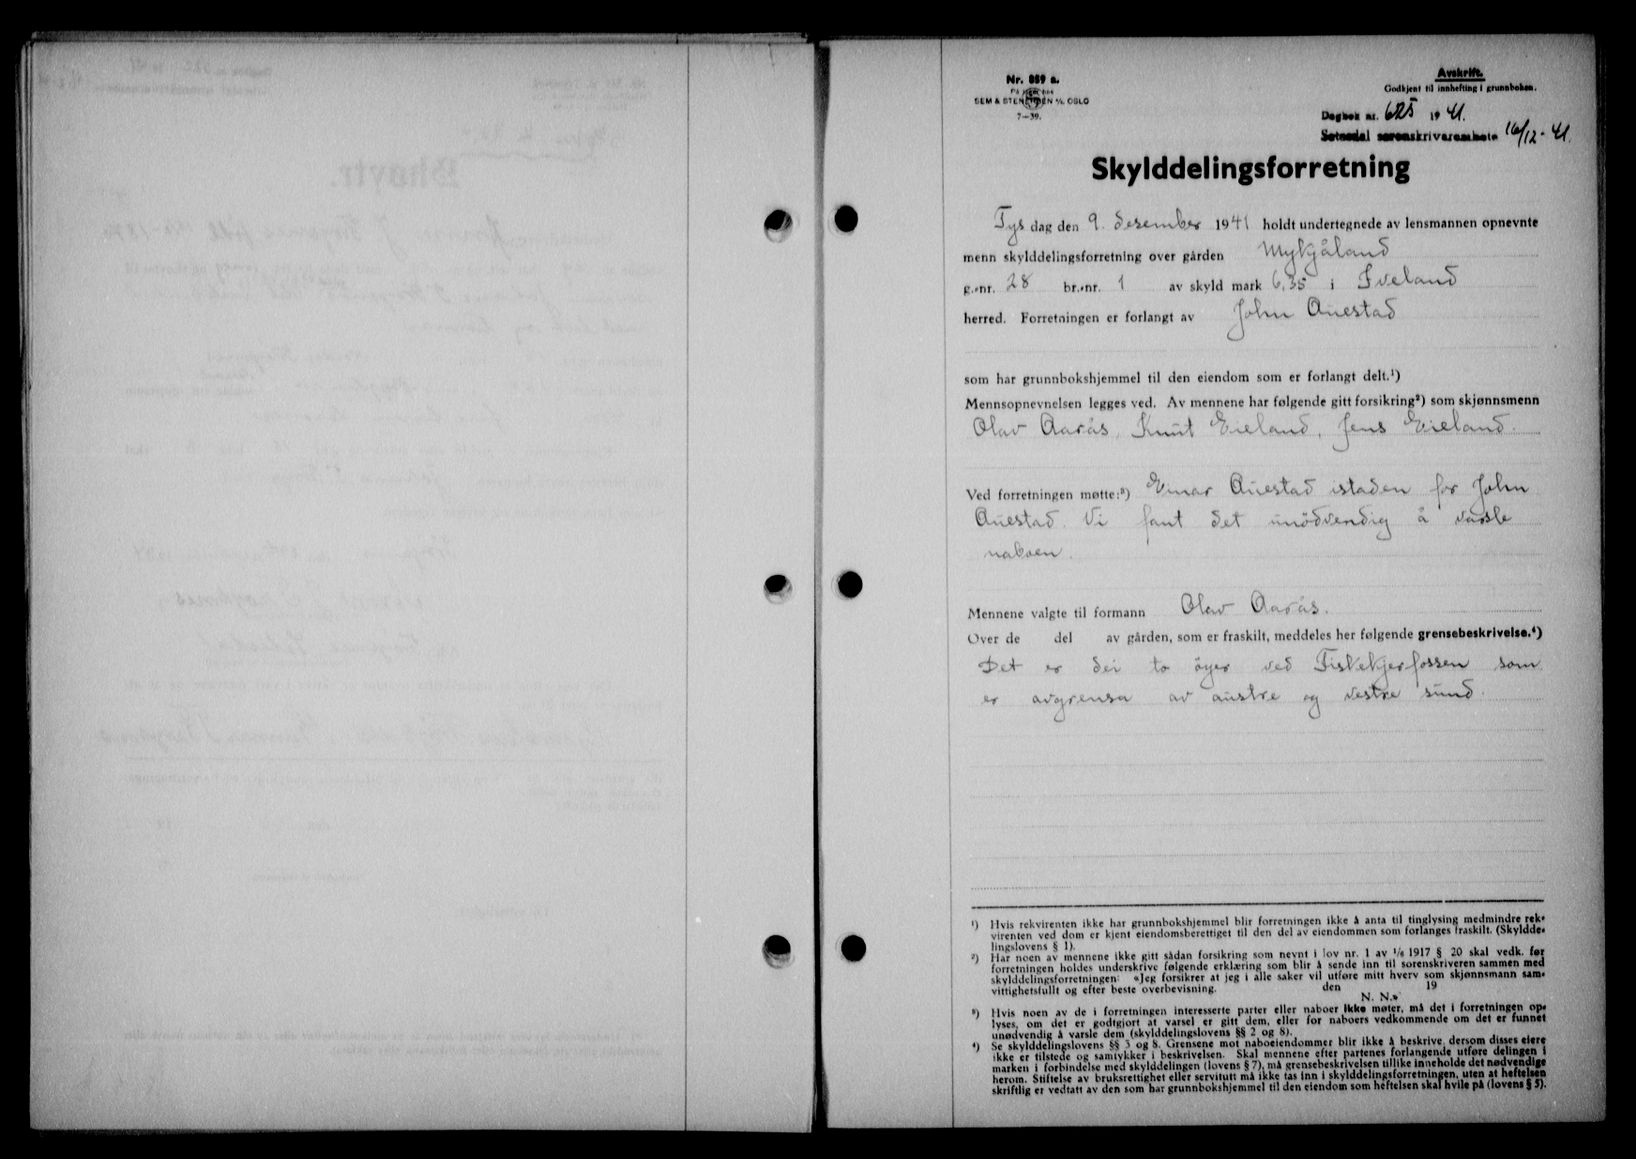 Nr. 859 a.
SEM & STENERSEN A/S. OSLO
7—39.
Avskrift.
Godkjent til innhefting i grunnboken.
Dagbok nr. 625 1941.
Setesdal sorenskriverembete 16/12-41.
Skylddelingsforretning
Tysdag den 9. desember 1941 holdt undertegnede av lensmannen opnevnte
menn skylddelingsforretning over gården Mykjåland
g.-nr. 28 br.-nr. 1 av skyld mark 6,35 i Iveland
herred. Forretningen er forlangt av John Auestad
som har grunnbokshjemmel til den eiendom som er forlangt delt.¹)
Mennsopnevnelsen legges ved. Av mennene har følgende gitt forsikring²) som skjønnsmenn
Olav Aarås, Knut Eieland, Jens Eieland.
Ved forretningen møtte:³) Einar Auestad istaden for John
Auestad. Vi fant det unödvendig å varsle
naboen.
Mennene valgte til formann Olav Aarås.
Over de del av gården, som er fraskilt, meddeles her følgende grensebeskrivelse.⁴)
Det er dei to öyer ved Fiskekjerfossen som
er avgrensa av austre og vestre sund.
¹) Hvis rekvirenten ikke har grunnbokshjemmel blir forretningen ikke å anta til tinglysing medmindre rek-
virenten ved dom er kjent eiendomsberettiget til den del av eiendommen som forlanges fraskilt. (Skyldde-
lingslovens § 1).
²) Har noen av mennene ikke gitt sådan forsikring som nevnt i lov nr. 1 av 1/6 1917 § 20 skal vedk. før
forretningen holdes underskrive følgende erklæring som blir å sende inn til sorenskriveren sammen med
skylddelingsforretningen: «Jeg forsikrer at jeg i alle saker vil utføre mitt hverv som skjønnsmann sam-
vittighetsfullt og efter beste overbevisning. den 19
N. N.»
³) Hvis noen av de i forretningen interesserte parter eller naboer ikke møter, må det i forretningen op-
lyses, om det er godtgjort at varsel er gitt dem, eller for naboers vedkommende om det er funnet
unødvendig å varsle dem (skylddelingslovens §§ 2 og 8).
⁴) Se skylddelingslovens §§ 3 og 8. Grensene mot naboeiendommer blir ikke å beskrive, dersom disses eiere
ikke er tilstede og samtykker i beskrivelsen. Skal mennene efter partenes forlangende utføre delingen i
marken i forbindelse med skylddelingen (lovens § 7), må grensebeskrivelsen tillike inneholde det nødvendige
herom. Stiftelse av bruksrettighet eller servitutt må ikke tas inn i skylddelingsforretningen, uten at heftelsen
skriftlig er vedtatt av den som har grunnbokshjemmel til den eiendom som heftelsen skal hvile på (lovens § 5).